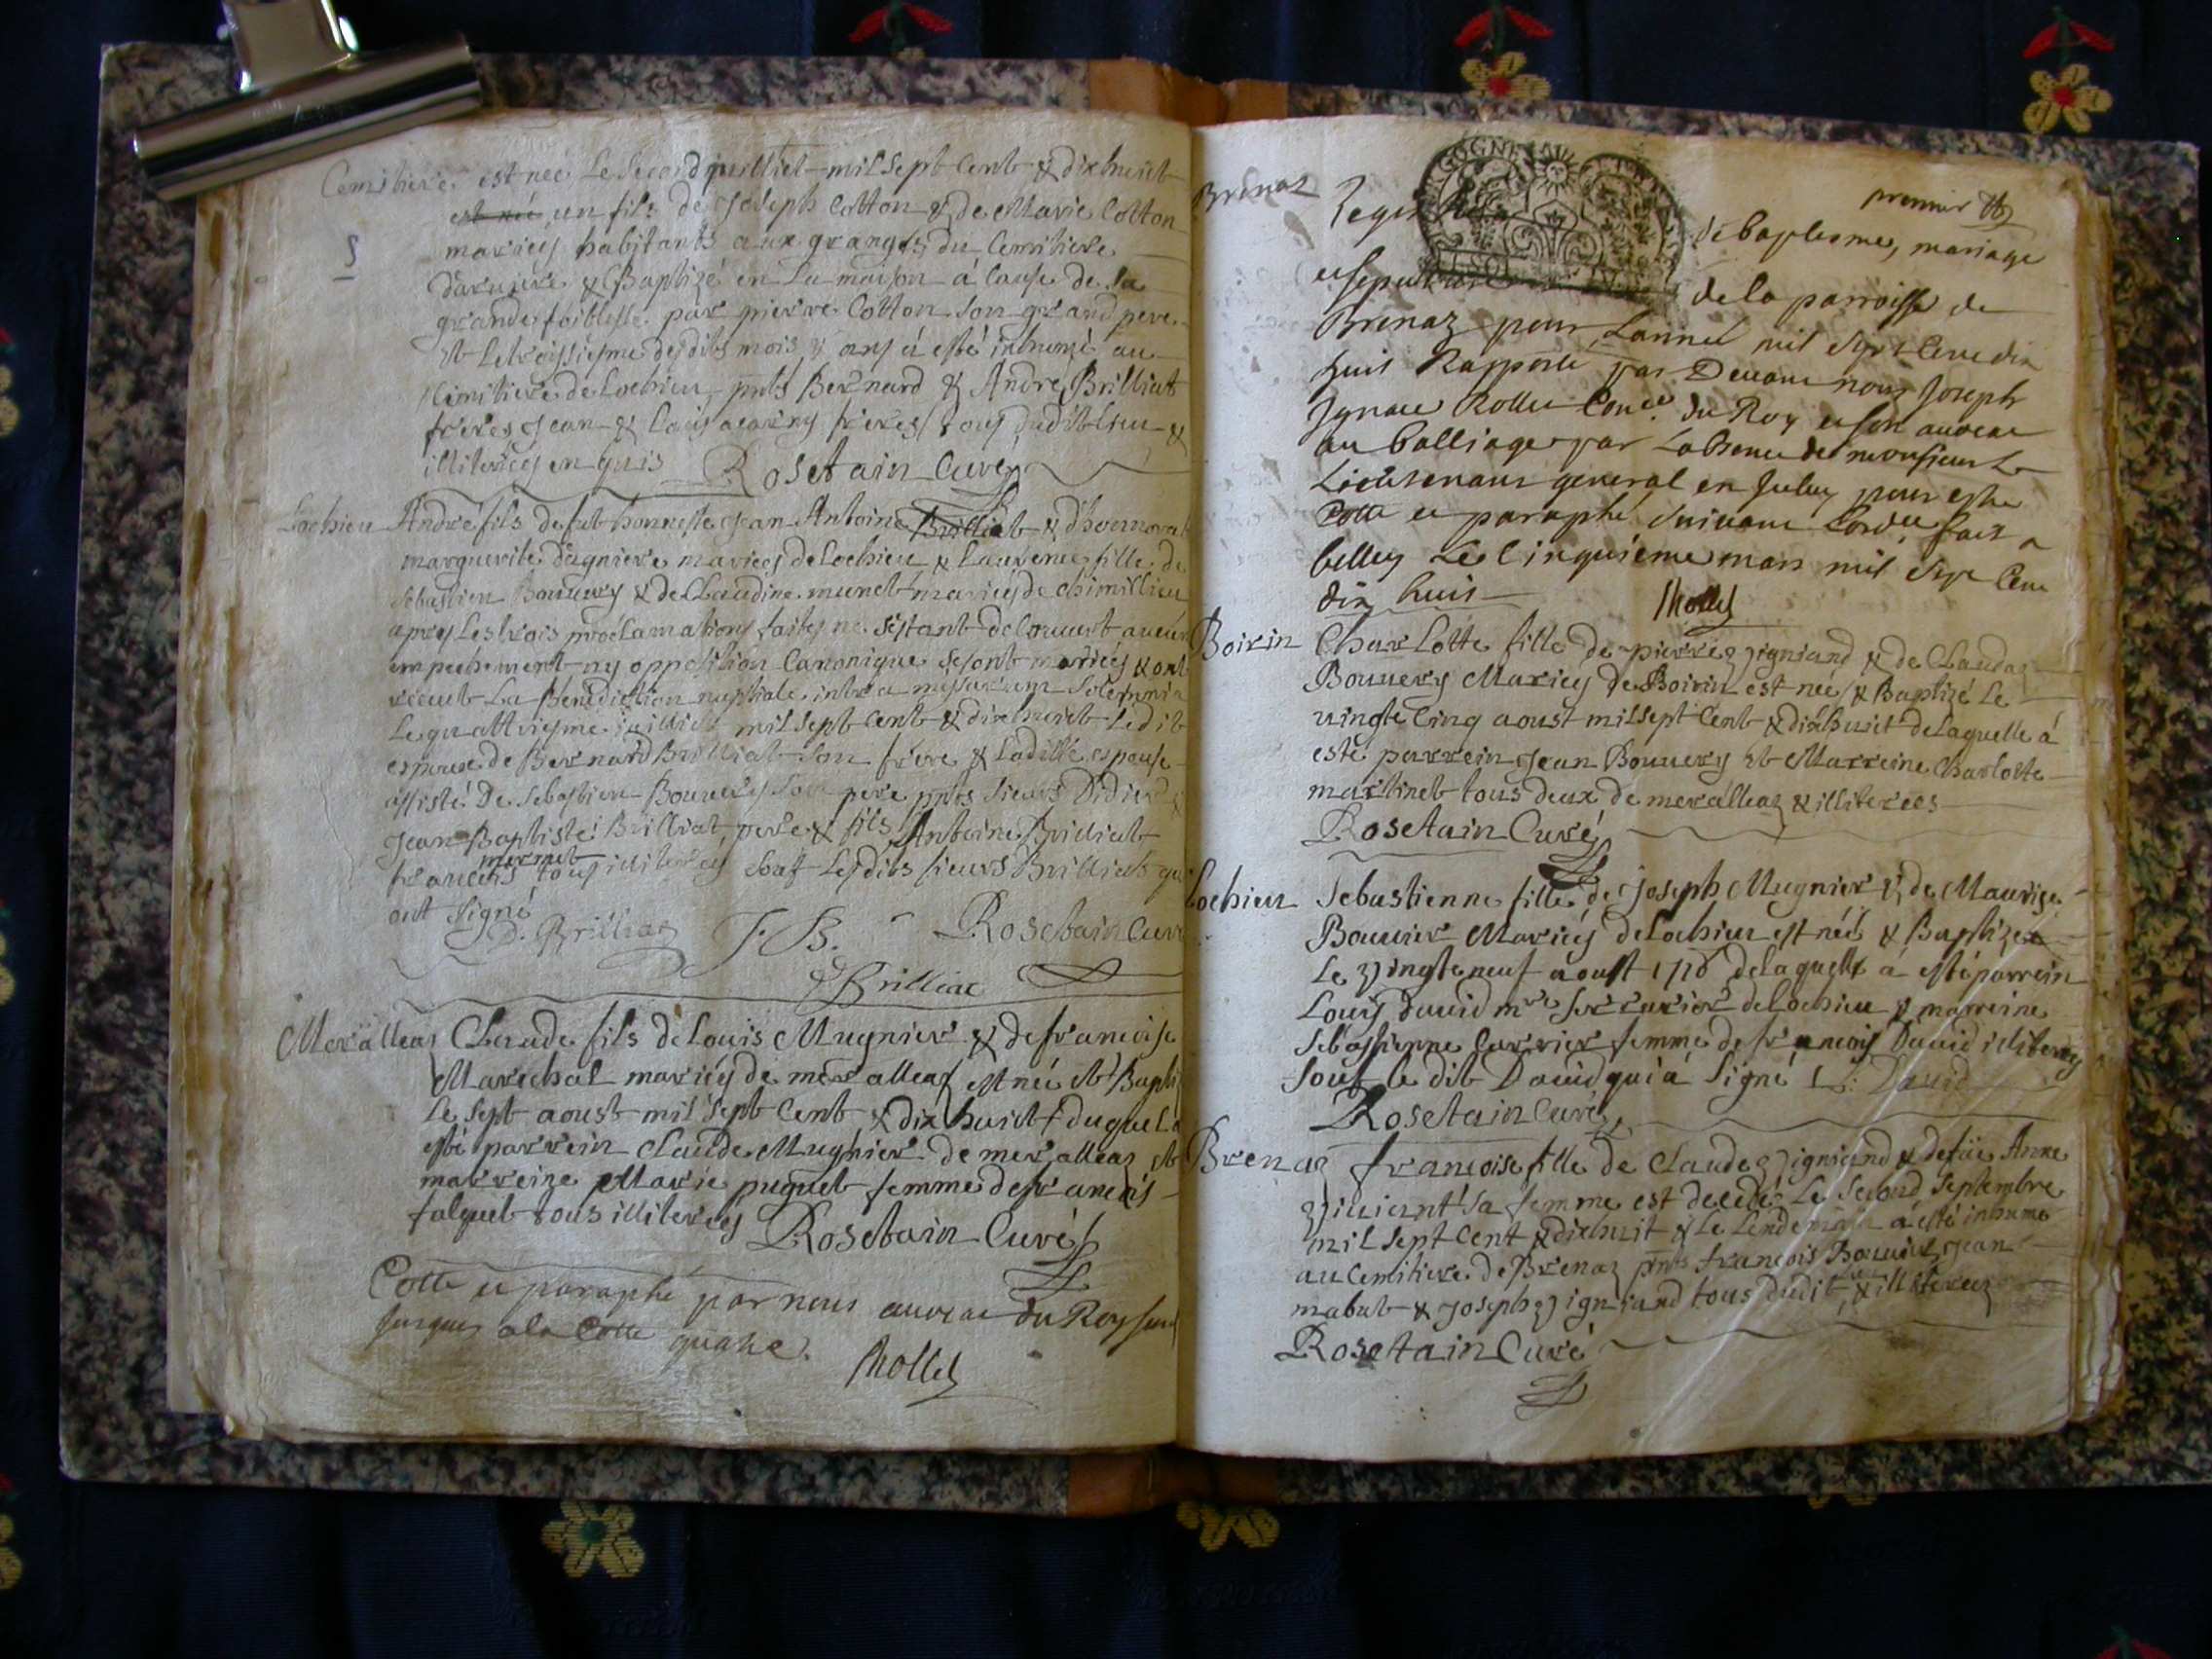 Cemitiere est neé Le Second juilliet mil sept Cent & dixhuict
est née un fils de Joseph Cotton & de Marie Cotton
mariéz habitants aux granges du Cemitiere
& Baptizé en La maison á Cause de la
grande foiblesse par pierre Cotton son grand pere
Et Le troissiesme desdits mois & ans á esté inhumé au
Cimitiere de Lochieu pnts Bernard & André Brilliat
freres Jean & Louis freres tous dudit Lieu &
illiteréz enquis Rosetain Curé
Lochieu André fils de fut honneste Jean Antoine Brilliat & d'honnorable
marguerite Dugniere mariéz de Lochieu & Laurence fille de
Sebastien Bouvery & de Claudine munet mariéz de Chimillieu
apres Les trois proclamations faites ne s'estant decouvert aucun
empechement ny opposition Canonique se sont mariéz & ont
receut La Benediction nuptiale intra missarum Solemnia
Le quattriesme juilliet mil sept Cent & dixhuict Ledit
espoux de Bernard Brilliat son frere & Laditte espouse
assisté De Sebastien Bouvery son pere pnts sieurs Didier &
Jean Baptiste Brilliat pere & fils Antoine Brilliat
francois mernet tous illiteréz sauf Lesdits sieurs Brilliat qui
ont signé
D. Brilliat J. B. Rosetain Curé
Brilliat
Meralleaz Claude fils de Louis Mugnier & de francoise
Marechal mariéz de meralleaz est né et Baptizé
Le sept aoust mil sept Cent & dix huict duquel á
esté parrein Claude Mugnier de meralleaz et
marreine Marie puguet femme de francois
falquet tous illiteréz Rosetain Curé
Cotte et paraphé par nous avocat du Roy
jusques a la Cotte quatre. Rollet
Brenaz premier
Registre de baptesme, mariage
et sepulture de la parroisse de
Brenaz pour Lannée mil sept Cent dix
huit Rapporté par Devant nous Joseph
Ignace Rollet Coner du Roy et son avocat
au balliage par Labsence de monsieur Le
Lieutenant general en Jceluy pour estre
Cotte et paraphé suivant Lordce fait a
belley Le Cinquieme mars mil sept Cent
dix huit Rollet
Boirin Charlotte fille de pierre Jigniand & de Claudaz
Bouvery Mariéz de Boirin est née & Baptizé Le
vingte Cinq aoust mil sept Cent & dixhuict de Laquelle á
esté parrein Jean Bouvery Et Marreine Charlotte
martinet tous deux de meralleaz & illiterees
Rosetain Curé
Lochieu Sebastienne fille de Joseph Mugnier & de Maurise
Bouvier Mariéz de Lochieu est neé & Baptizee
Le vingte neuf aoust 1718 de laquelle á esté parrein
Louys David mre serrurier de Lochieu & marreine
Sebastienne Carrier femme de francois David illiteréz
sauf le dit David qui á signé L: David
Rosetain Curé
Brenaz francoise fille de Claude Jigniand & de füe Anne
Vivient sa femme est decedé Le Second Septembre
mil sept Cent & dixhuit & Le Lendemain á esté inhumé
au Cemitiere de Brenaz pnts francois Bouvier Jean
mabut & Joseph Jigniand tous dudit Lieu & illitereez
Rosetain Curé